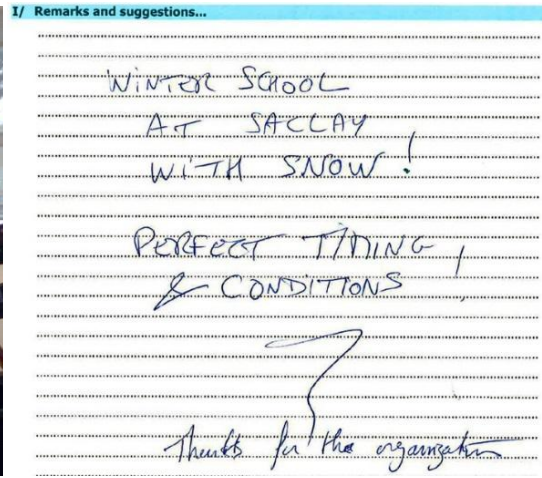 I/ Remarks and suggestions...
WINTER SCHOOL
AT SACLAY
WITH SNOW !
PERFECT TIMING !
& CONDITIONS !
Thanks for the organization